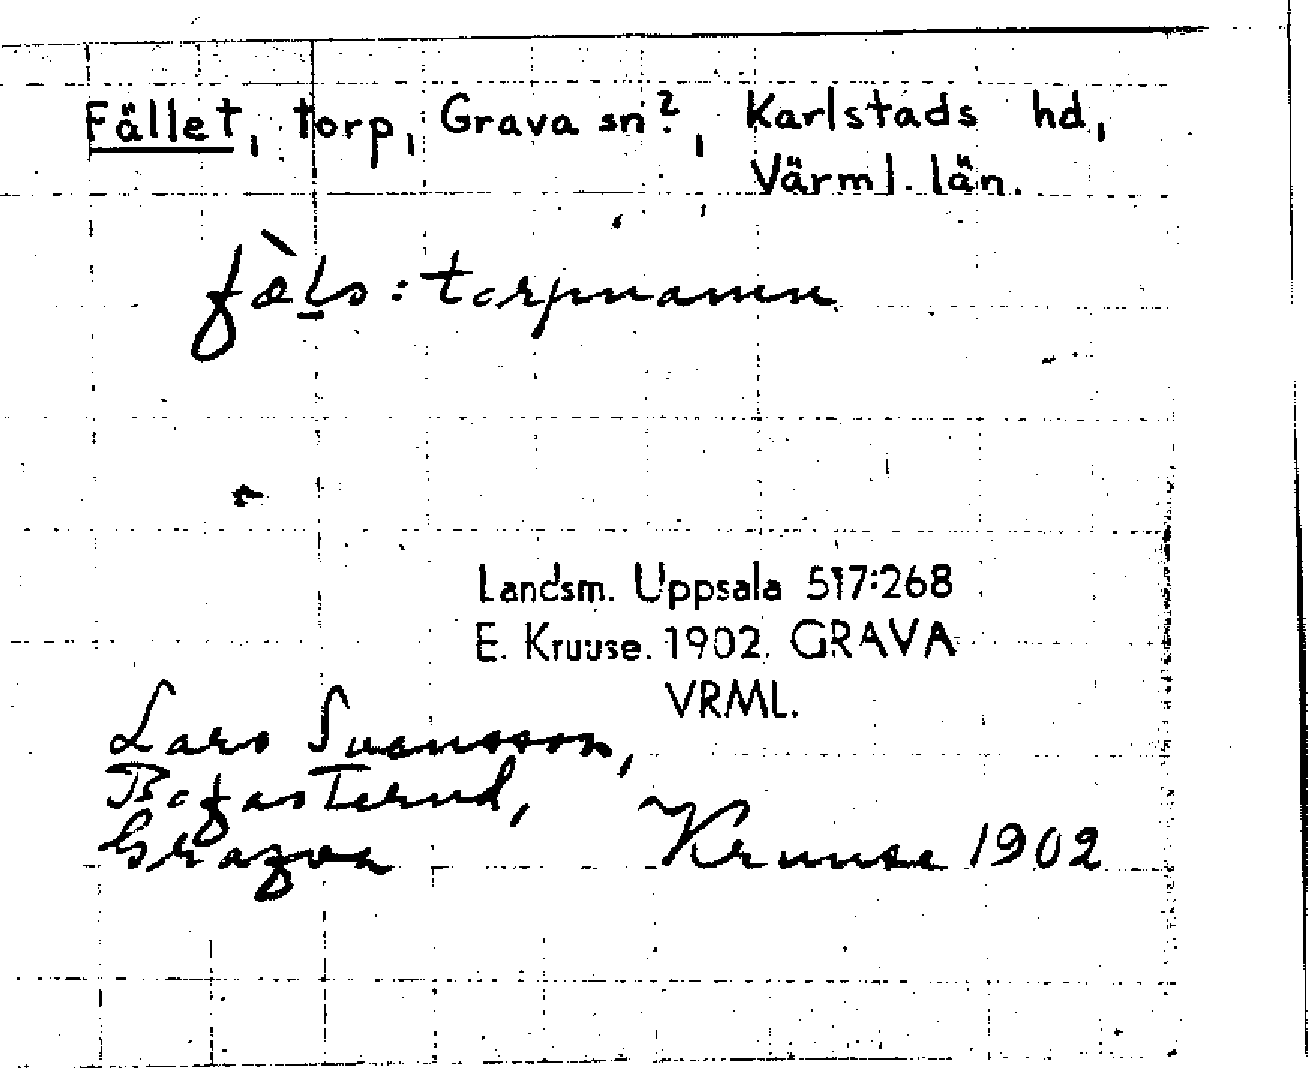 Fället, torp, Grava sn?, Karlstads hd,
Värml. län.
fæ̀ls: torpnamn
Landsm. Uppsala 517:268
E. Kruuse. 1902. GRAVA
VRML.
Lars Svensson,
Bofasterud,
Grafva
Kruuse 1902